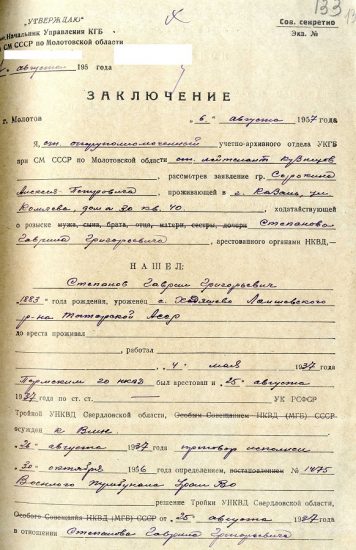 133
„УТВЕРЖДАЮ"
Сов. секретно
Начальник Управления КГБ
Экз. №
СМ СССР по Молотовской области
августа 195 года
ЗАКЛЮЧЕНИЕ
г. Молотов „6." августа 1957 года
Я, ст. оперуполномоченный учетно-архивного отдела УКГБ
при СМ СССР по Молотовской области ст. лейтенант Кузнецов
, рассмотрев заявление гр. Сорокина
Алексея Петровича, проживающей в г. Казань, ул.
дом 20 кв. 40, ходатайствующей
о розыске мужа, сына, брата, отца, матери, сестры, дочери Степанова
Гаврила Григорьевича, арестованного органами НКВД,
НАШЕЛ:
Степанов Гаврил Григорьевич
1883 года рождения, уроженец с. Ходяшево Лаишевского
р-на Татарской Асср
до ареста проживал
, работал
„4" мая 1937
Пермским го нквд был арестован и „25" августа
1937 года по ст. ст. — УК РСФСР
Тройкой УНКВД Свердловской области, Особым Совещанием НКВД (МГБ) СССР
осужден к Вмн.
августа 1937 приговор исполнен
„30" октября 1956 определением, постановлением № 1475
Военного трибунала Урал ВО
решение Тройки УНКВД Свердловской области,
Особого Совещания НКВД (МГБ) СССР от „25" августа 1937
в отношении Степанова Гаврила Григорьевича